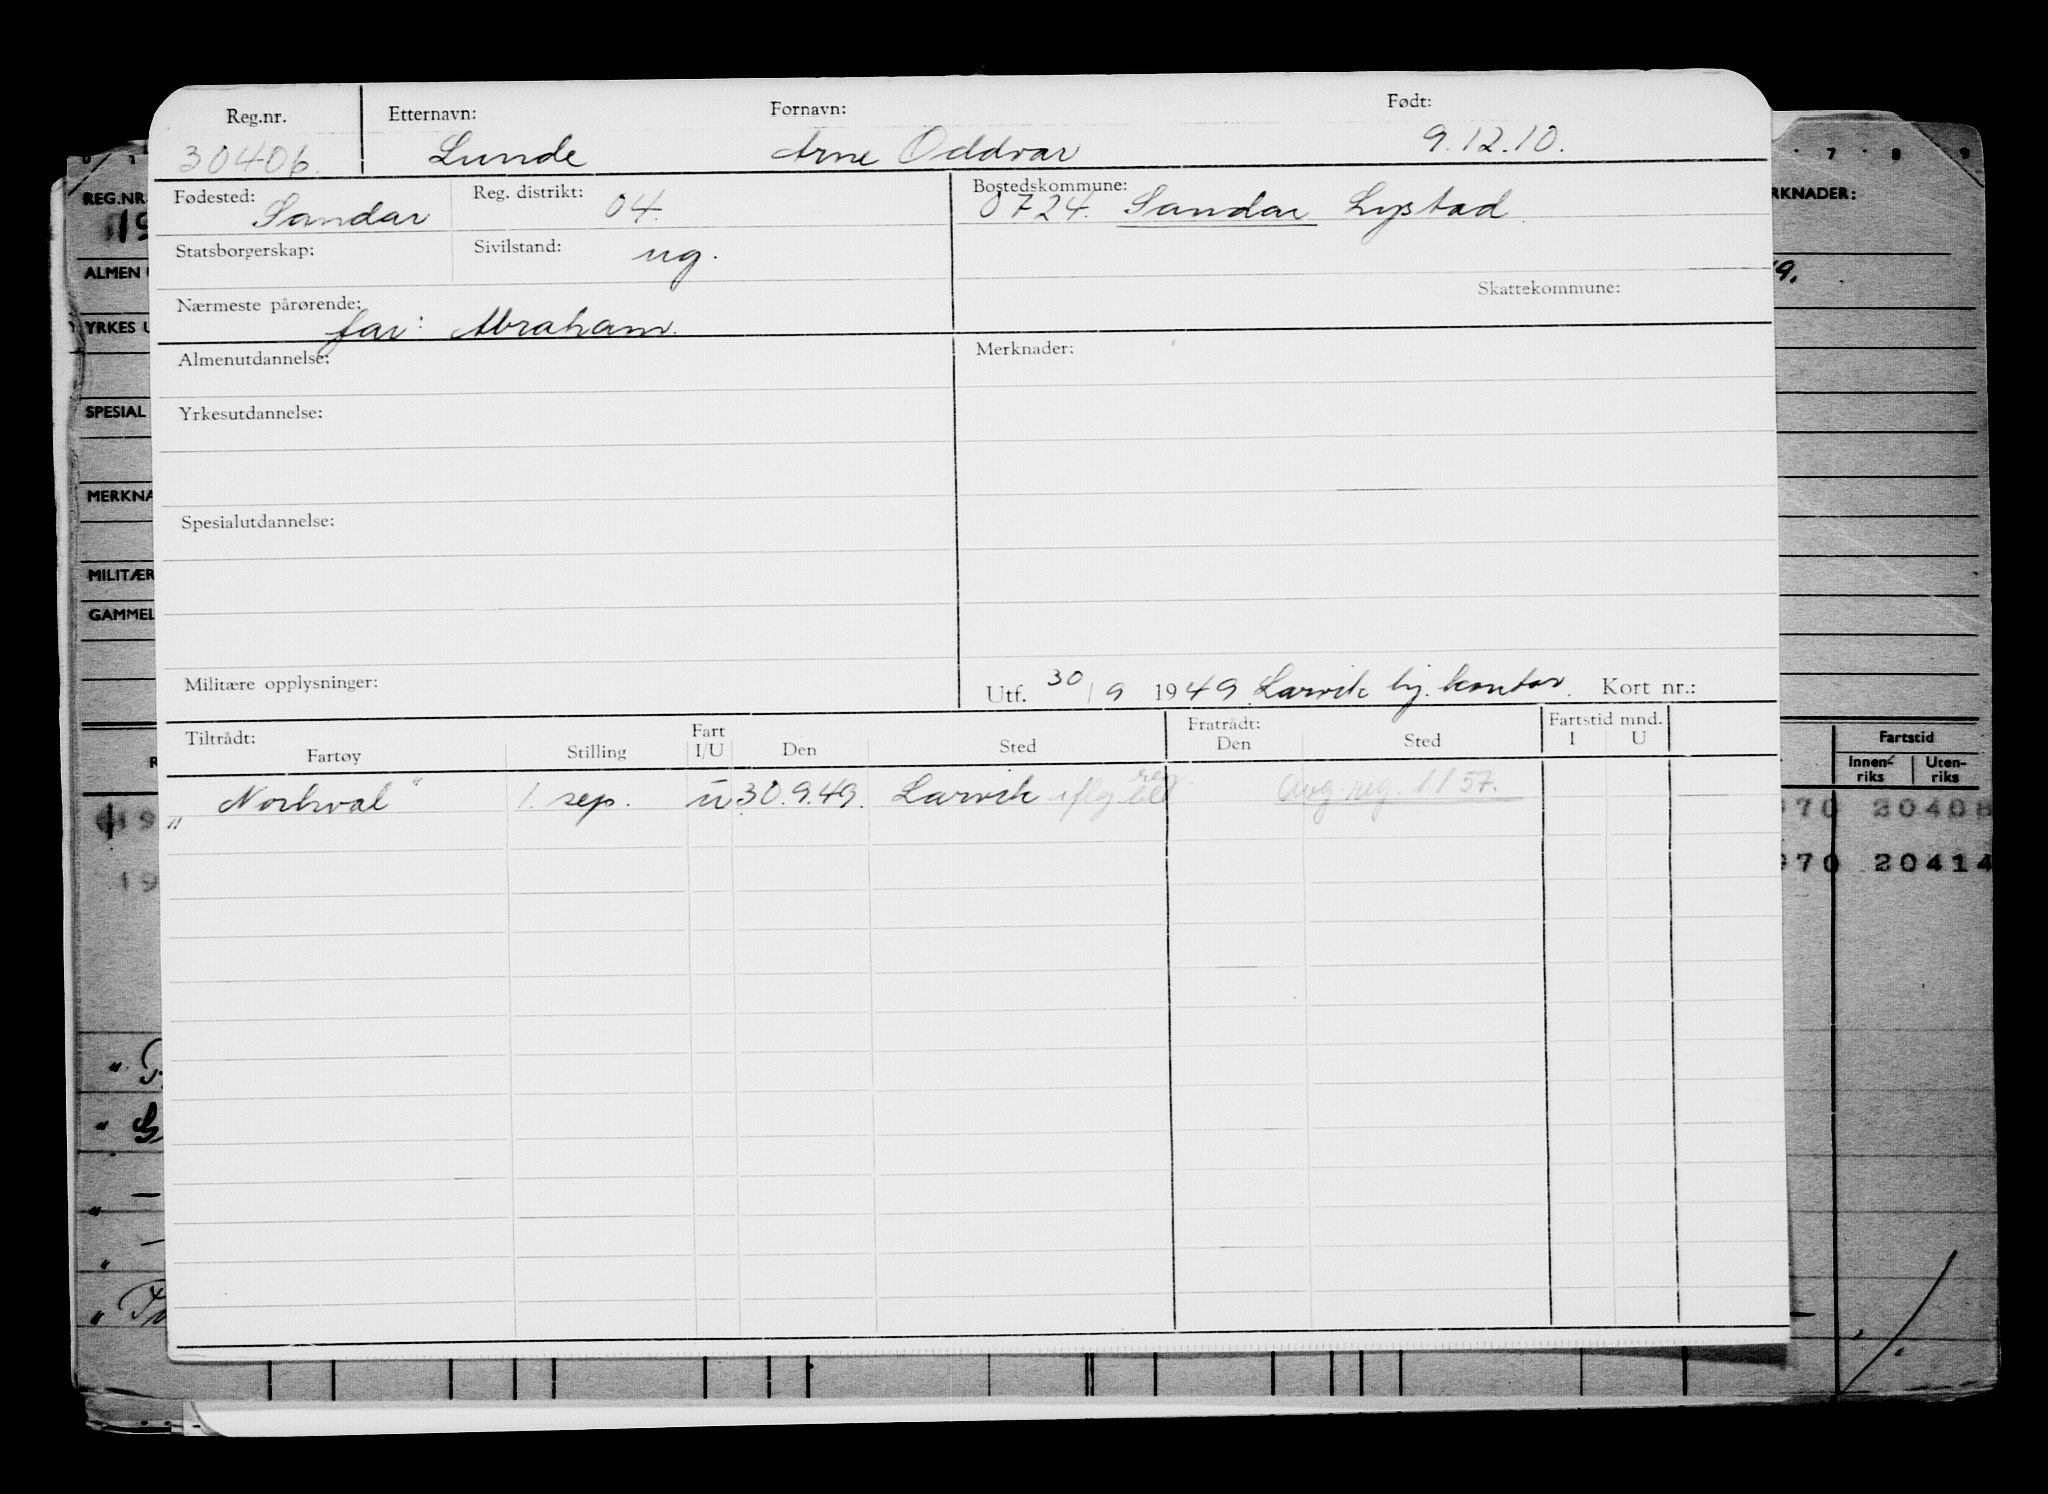 Reg.nr. Etternavn: Fornavn: Født:
30406. Lunde Arne Oddvar 9.12.10.
Fødested: Sandar Reg. distrikt: 04. Bostedskommune: 0724. Sandar Lystad.
Statsborgerskap: Sivilstand: ug.
Skattekommune:
Nærmeste pårørende: far: Abraham.
Almenutdannelse: Merknader:
Yrkesutdannelse:
Spesialutdannelse:
Militære opplysninger: Utf. 30/9 1949. Larvik hj. kontor. Kort nr.:
Tiltrådt: Fart Fratrådt: Fartstid mnd.
Fartøy Stilling I/U Den Sted Den Sted I U
"Norhval" 1. sep. u 30.9.49. Larvik iflg reg. Avg. reg. 1/1 57.
0 1 7 8 9
REG.NR. RKNADER:
19
ALMEN U 9.
YRKES U
SPESIAL
MERKNA
MILITÆR
GAMMEL
Fartstid
R Innen-riks Uten-riks
19 970 20408
19 970 20414